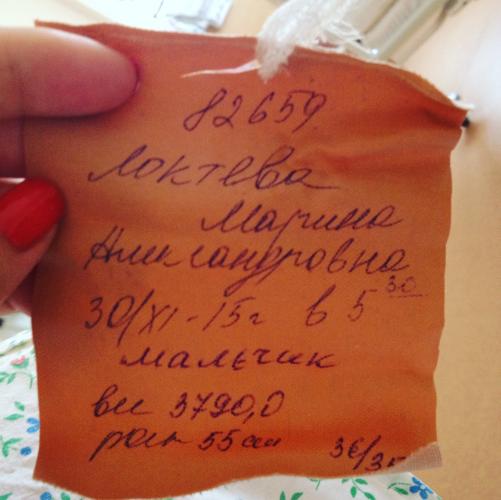 82659
Локтева
Марина
Александровна
30/XI-15г в 5 30
мальчик
вес 3790,0
рост 55 см 36/35